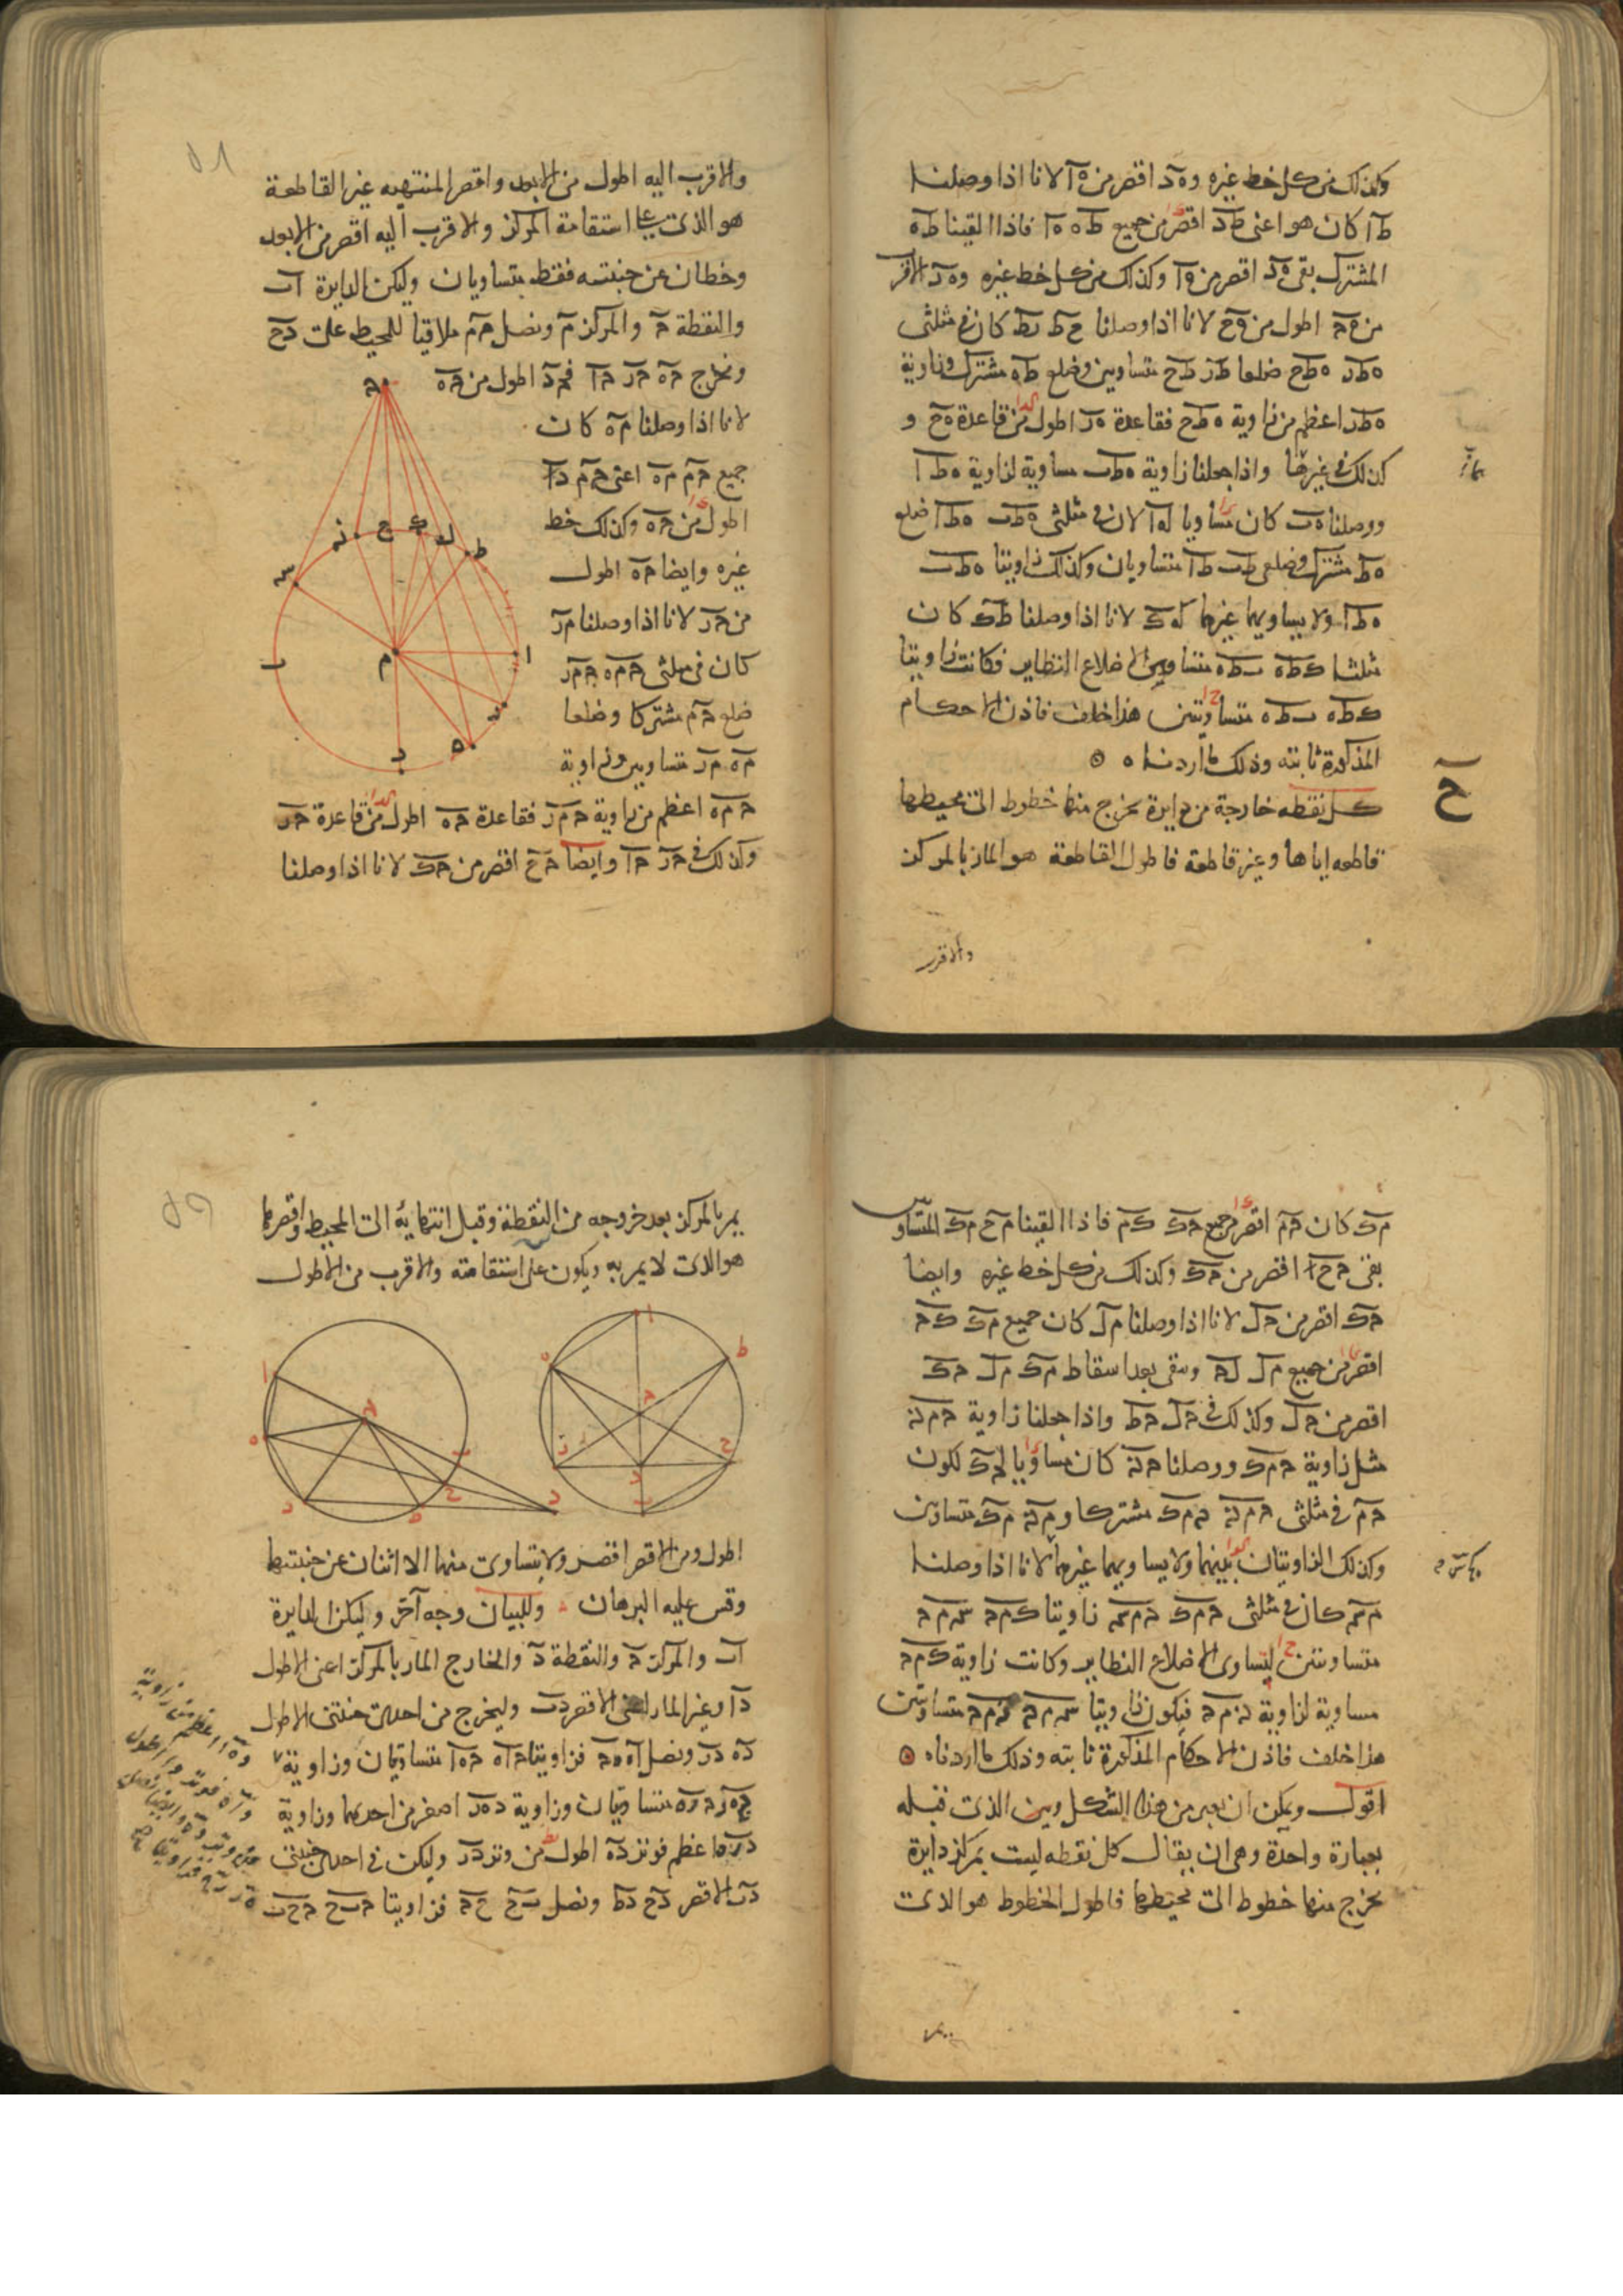 وكذلك من كل خط غيره و ه د اقصر من ه آ لانا اذا وصلنا
ط آ كان هو اعنى ط د اقصر من جميع ط ه ه آ فاذا القينا ط ه
المشترك بقى ه د اقصر من ه آ وكذلك من كل خط غيره و ه د الاقر
اطول من ه ح لانا اذا وصلنا ح ط ر ط كان فى مثلثى
ه ط ر ه ط ح ضلعا ط ر ط ح متساويين وضلع ط ه مشترك وزاوية
ه ط ر اعظم من زاوية ه ط ح فقاعدة ه ر اطول من قاعدة ه ح و
كذلك فى غيرها واذا جعلنا زاوية ه ط ب مساوية لزاوية ه ط ا
ووصلنا ه ب كان مساويا له آ لان فى مثلثى ه ط ب ه ط آ ضلع
ه ط مشترك وضلعى ط ب ط آ متساويان وكذلك زاويتا ه ط ب
ه ط آ ولا يساويهما غيرهما كه ك لانا اذا وصلنا ط ك كان
مثلثا ك ط ه ب ط ه متساويى الاضلاع النظاير فكانت زاويتا
ك ط ه ب ط ه متساويتين هذا خلف فاذن الاحكام
المذكورة ثابته وذلك ما اردناه
ح
كل نقطه خارجة من دايرة يخرج منها خطوط الى محيطها
قاطعه اياها وغير قاطعة فاطول القاطعة هو المار بالمركز
والاقرب
والاقرب اليه اطول من الابعد واقصر المنتهيه غير القاطعة
هو الذى على استقامة المركز والاقرب اليه اقصر من الابعد
وخطان عن جنبتيه فقط متساويان وليكن الدايرة ا ب
والنقطة ح والمركز م ونصل ح م ملاقيا للمحيط على د ح
ونخرج ح ه ح ر ح آ فح د اطول من ح ه
لانا اذا وصلنا م ه كان
جميع ح م م ه اعنى ح م د
اطول من ح ه وكذلك خط
غيره وايضا ح ه اطول
من ح ر لانا اذا وصلنا م ر
كان فى مثلثى ح م ه ح م ر
ضلع ح م مشتركا وضلعا
م ه م ر متساويين وزاوية
ح م ه اعظم من زاوية ح م ر فقاعدة ح ه اطول من قاعدة ح ر
وكذلك فى ح ر ح آ وايضا ح ح اقصر من ح ك لانا اذا وصلنا
م ك كان ح م اقصر من جميع ح ك ك م فاذا القينا م ح م ك المتساو
بقى ح ح اقصر من ح ك وكذلك من كل خط غيره وايضا
ح ك اقصر من ح ل لانا اذا وصلنا م ل كان جميع م ك ك ح
اقصر من جميع م ل ل ح ويبقى بعد اسقاط م ك م ل ح ك
اقصر من ح ل وكذلك فى ح ل ح ط واذا جعلنا زاوية ح م ن
مثل زاوية ح م ك ووصلنا ح ن كان مساويا لح ك لكون
ح م فى مثلثى ح م ن ح م ك مشتركا و م ن م ك متساويين
وكذلك الزاويتان بينهما ولا يساويهما غيرهما لانا اذا وصلنا
م س كان فى مثلثى ح م ك ح م س زاويتا ك م ح س م ح
متساويتين لتساوى الاضلاع النظاير وكانت زاوية ك م ح
مساوية لزاوية ن م ح فيكون زاويتا س م ح ن م ح متساويتين
هذا خلف فاذن الاحكام المذكورة ثابته وذلك ما اردناه
اقول ويمكن ان يعبر عن هذا الشكل وعن الذى قبله
بعبارة واحدة وهى ان يقال كل نقطه ليست بمركز دايرة
يخرج منها خطوط الى محيطها فاطول الخطوط هو الذى
يمر بالمركز بعد خروجه من النقطة وقبل انتهايه الى المحيط واقصرها
هو الذى لا يمر به ويكون على استقامته والاقرب من الاطول
اطول ومن الاقصر اقصر ولا يتساوى منهما الا اثنان عن جنبتيها
وقس عليه البرهان وللبيان وجه آخر وليكن الدايرة
ا ب والمركز ح والنقطة د والخارج المار بالمركز اعنى الاطول
د آ وغير المار اعنى الاقصر د ب وليخرج من احدى جنبتى الاطول
د ه د ر ونصل آ ه ه ح فزاويتا ح ا ه ح ه ا متساويتان وزاوية
ح ه ر ح ر ه متساويتان وزاوية د ه ر اصغر من احدهما وزاوية
د ر ه اعظم فوتر د ه اطول من وتر د ر وليكن فى احدى جنبتى
د ب الاقصر د ح د ط ونصل ب ح ح ح فزاويتا ح ب ح ح ح ب